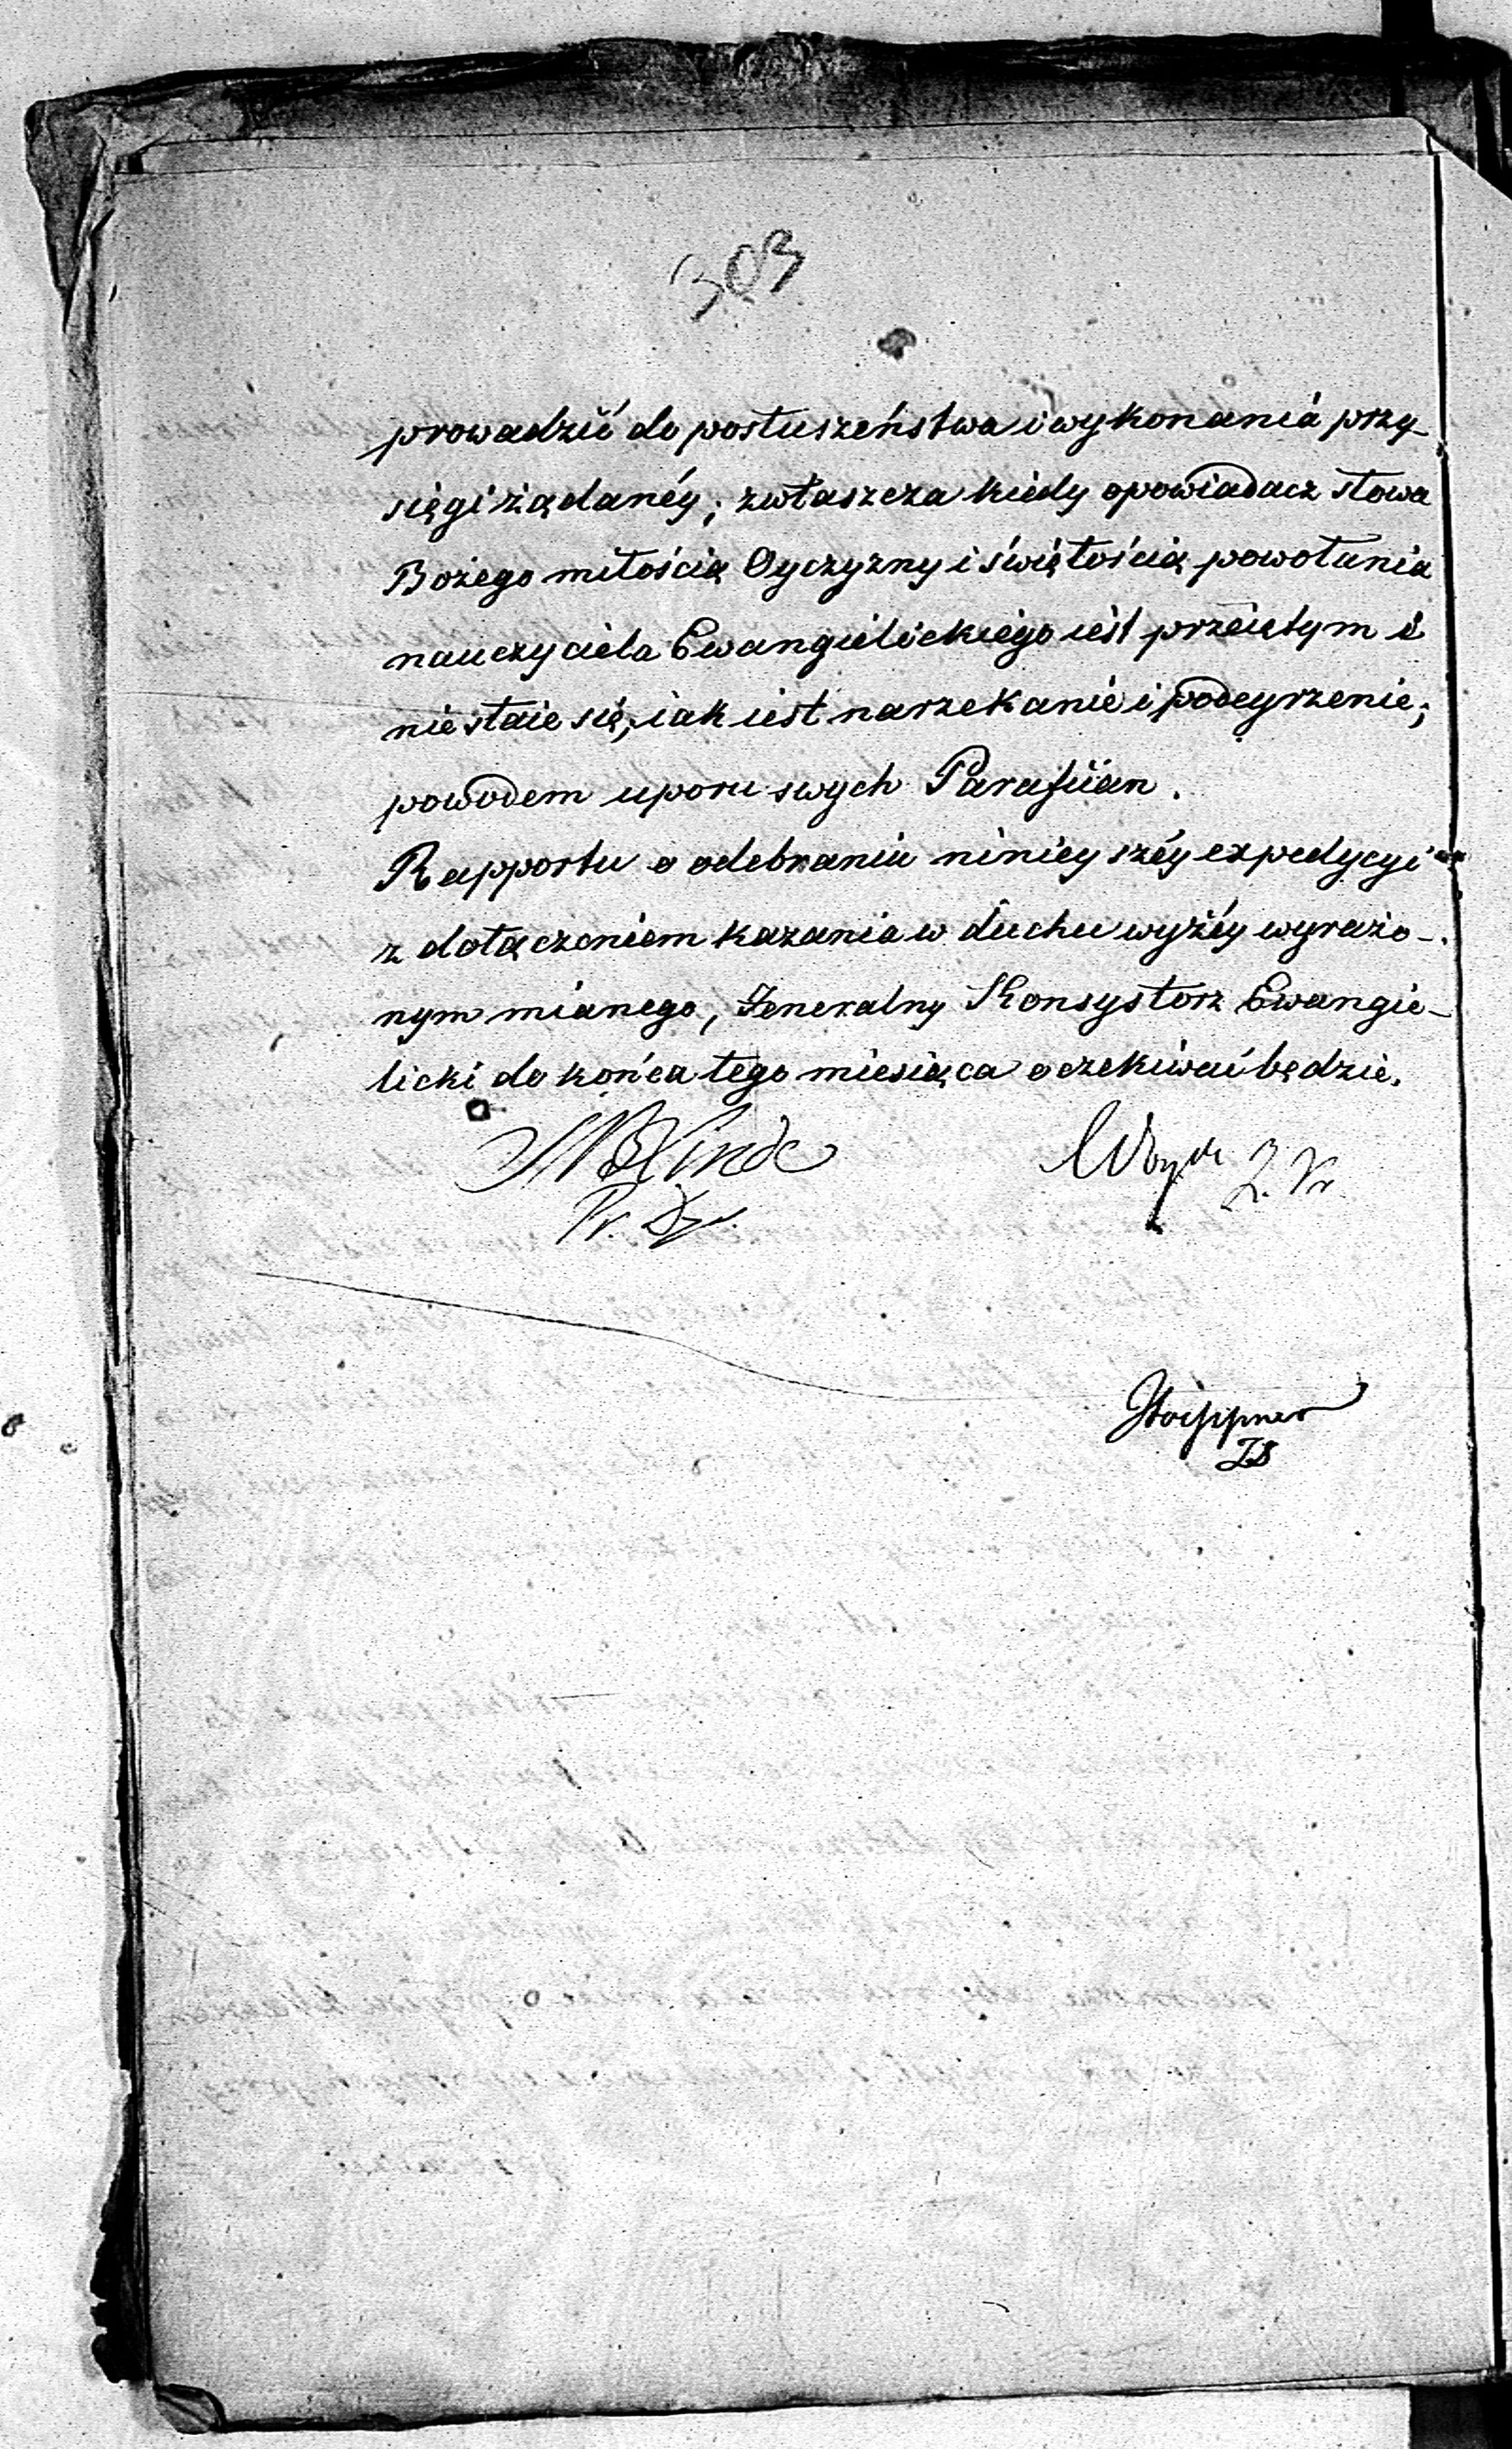 303
prowadzić do posłuszeństwa i wykonania przy-
sięgi żądanéy; zwłaszcza kiedy opowiadacz słowa
Bożego miłością Oyczyzny i świętością powołania
nauczyciela Ewangielickiego iest przeiętym i
nie staie się, iak iest narzekanie i podeyrzenie;
powodem uporu swych Parafiian.
Rapportu o odebraniu ninieyszéy expedycyi
z dołączeniem kazania w duchu wyżéy wyrażo-
nym mianego, Jeneralny Konsystorz Ewangie-
licki do końca tego miesiąca oczekiwać będzie.
MBLinde
Pr. Dyr.